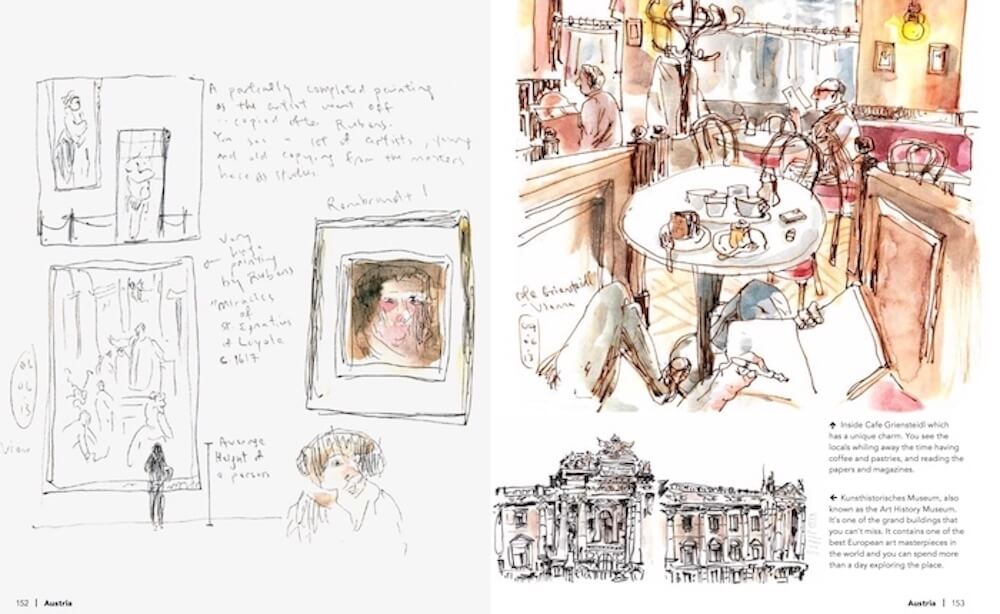 A partially completed painting
as the artist went off
copied after Rubens.
You see a lot of artists, young
and old copying from the masters
here as studies
Rembrandt!
Very
huge
painting
by Rubens
"Miracles
of
St. Ignatius
of Loyola
c 1617
06
06
13
Average
Height of
a person
152 | Austria
Cafe Griensteidl
Vienna
06
13
↑ Inside Cafe Griensteidl which
has a unique charm. You see the
locals whiling away the time having
coffee and pastries, and reading the
papers and magazines.
← Kunsthistorisches Museum, also
known as the Art History Museum.
It's one of the grand buildings that
you can't miss. It contains one of the
best European art masterpieces in
the world and you can spend more
than a day exploring the place.
Austria | 153